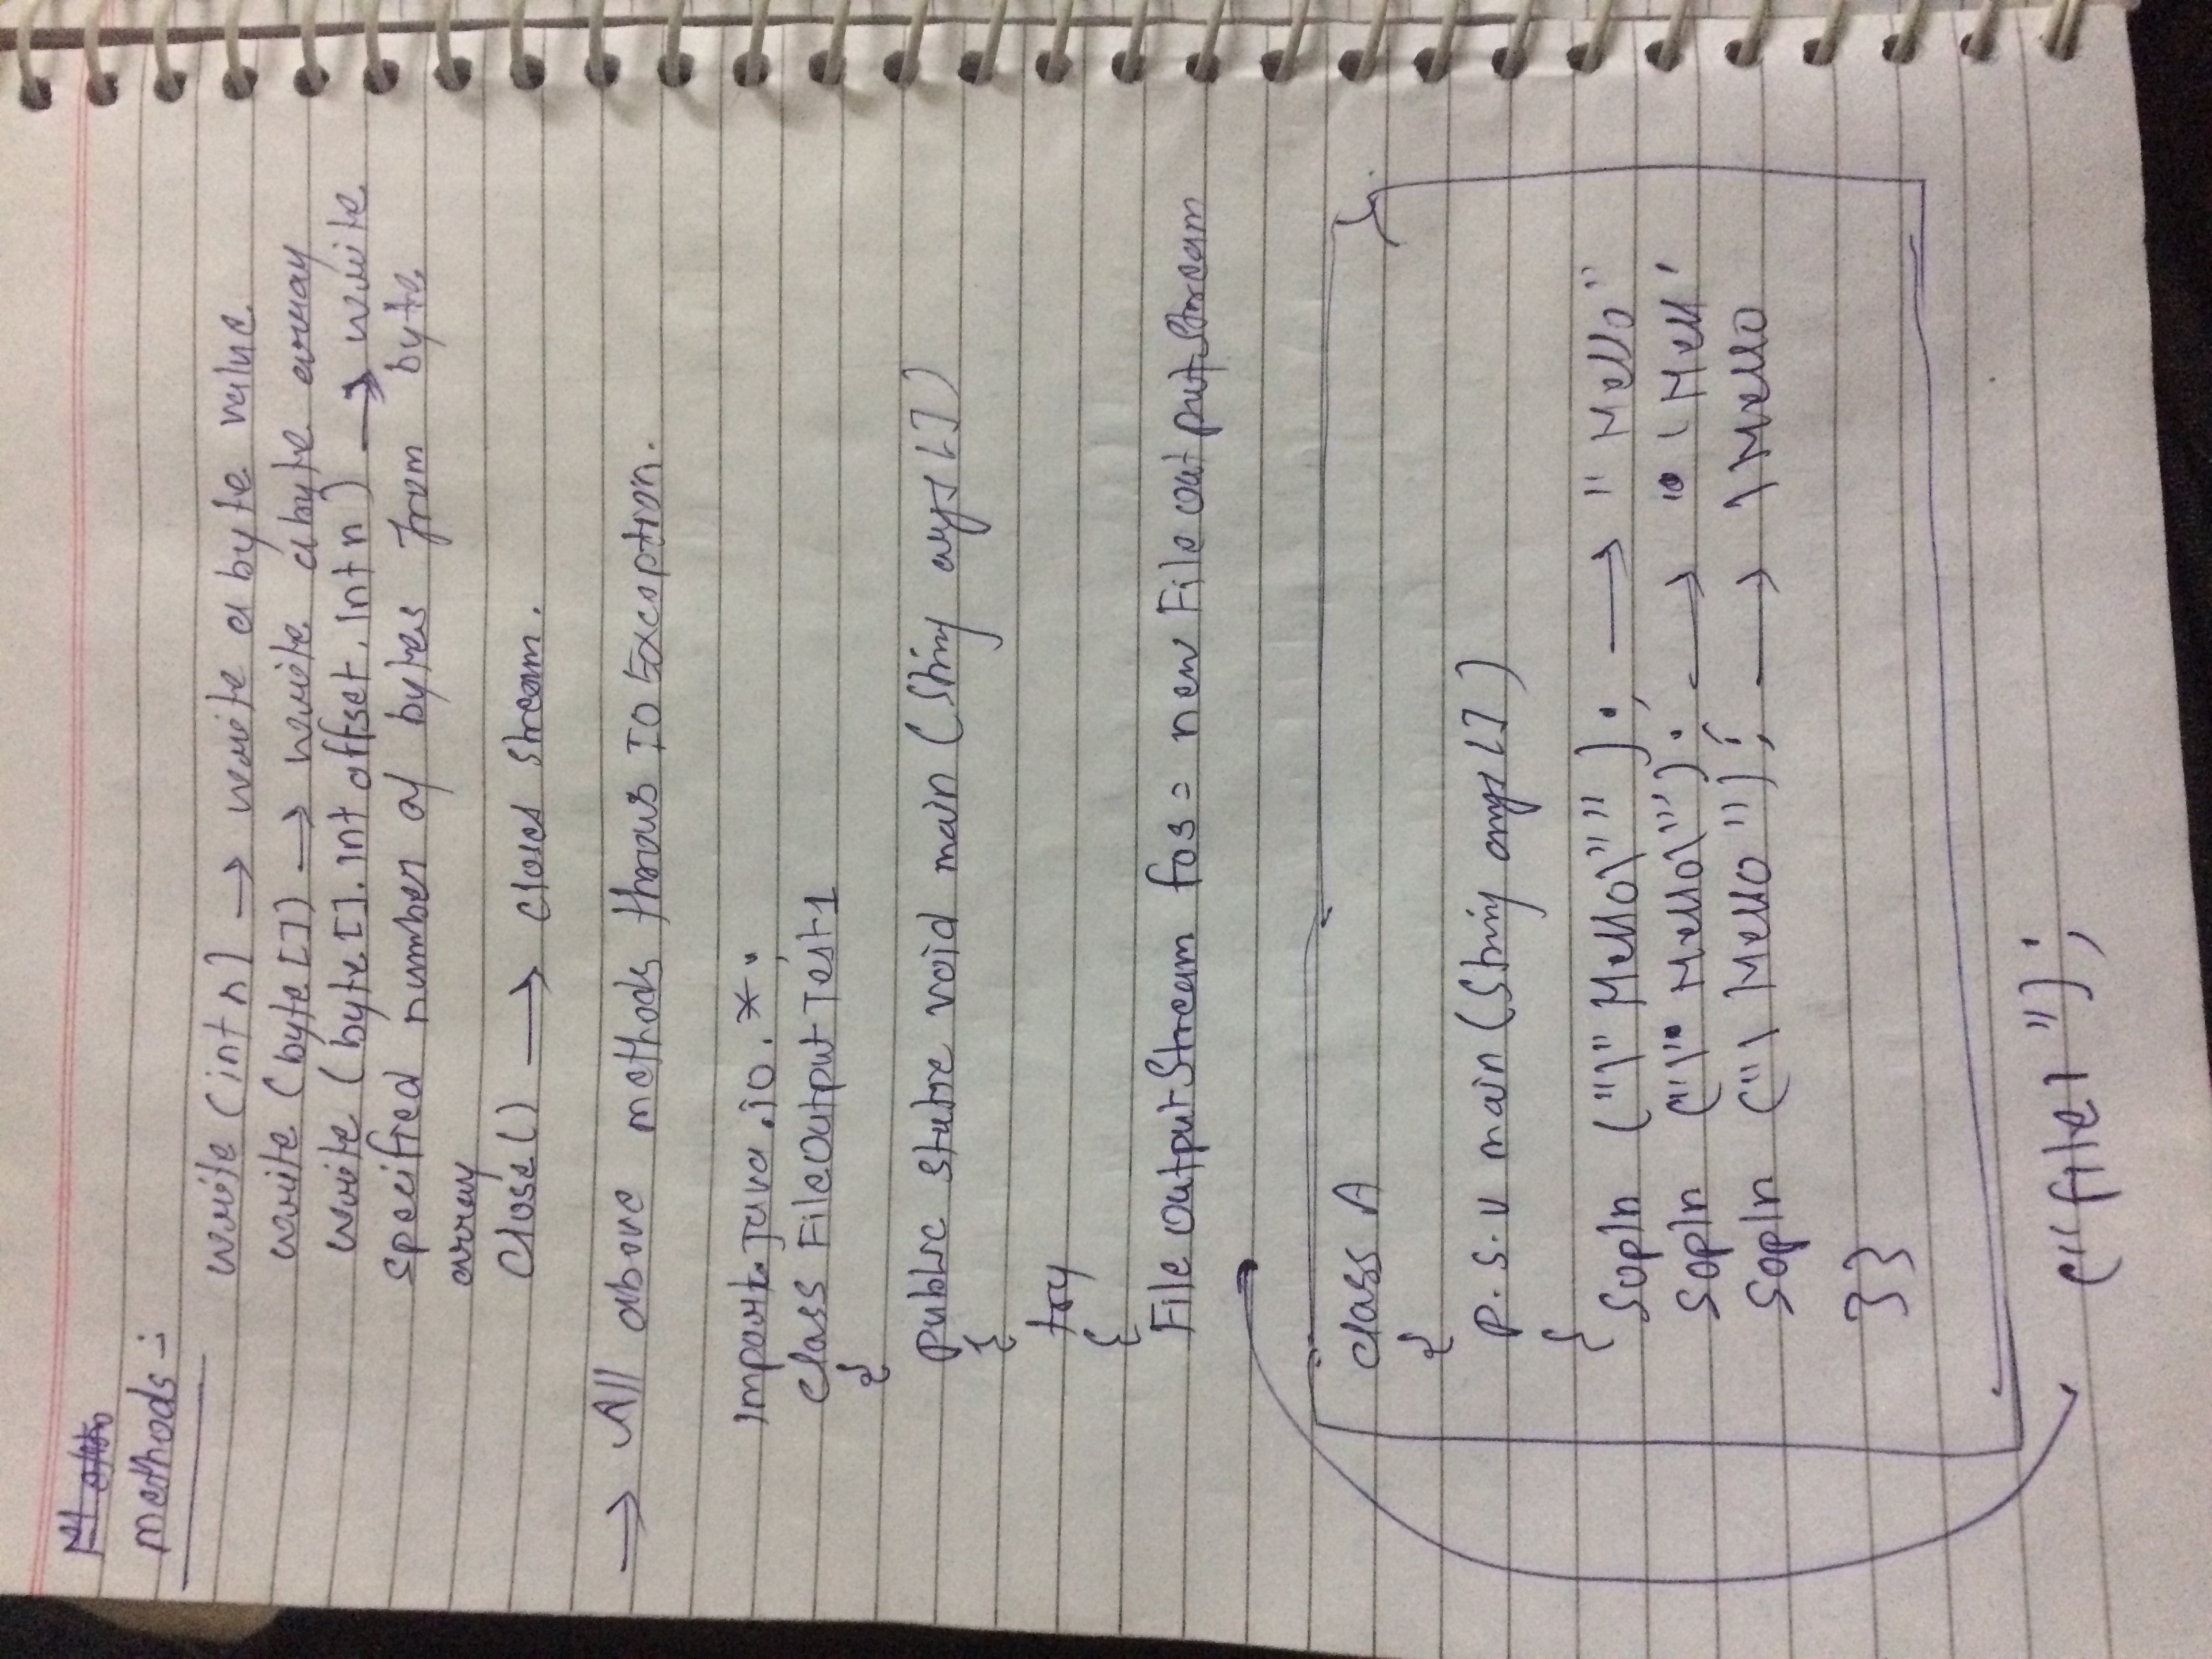 methods :-
write (int n) → write a byte value
write (byte []) → write a byte array
write (byte []. int offset. int n) → write
specified number of bytes from byte
array
Close() → closes stream.
→ All above methods throws IO Exception.
import java.io.*;
class FileOutputTest1
{
public static void main (String args [])
{
try
{
File OutputStream fos = new File Output Stream
class A
{
P.S.V main (String args [])
{
Sopln ("\" Hello\""); → " Hello"
Sopln ("\' Hello\'"); → ' Hell'
Sopln ("\ Hello "); → \ Hello
}}
("file1");